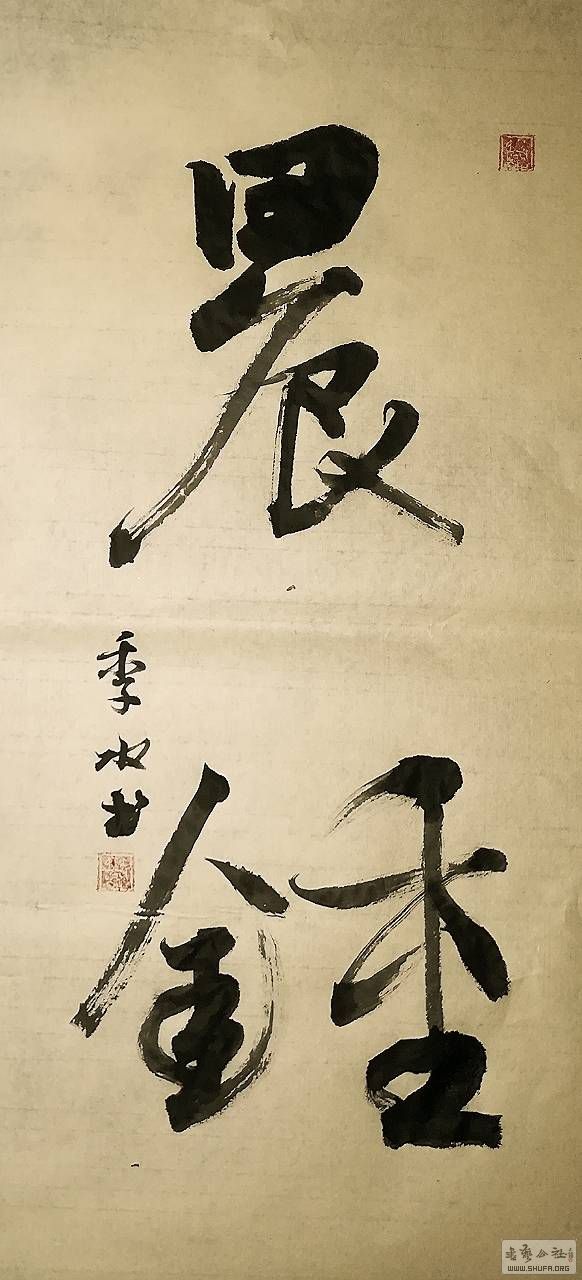 晨鍾
季水书
书藝公社
WWW.SHUFA.ORG